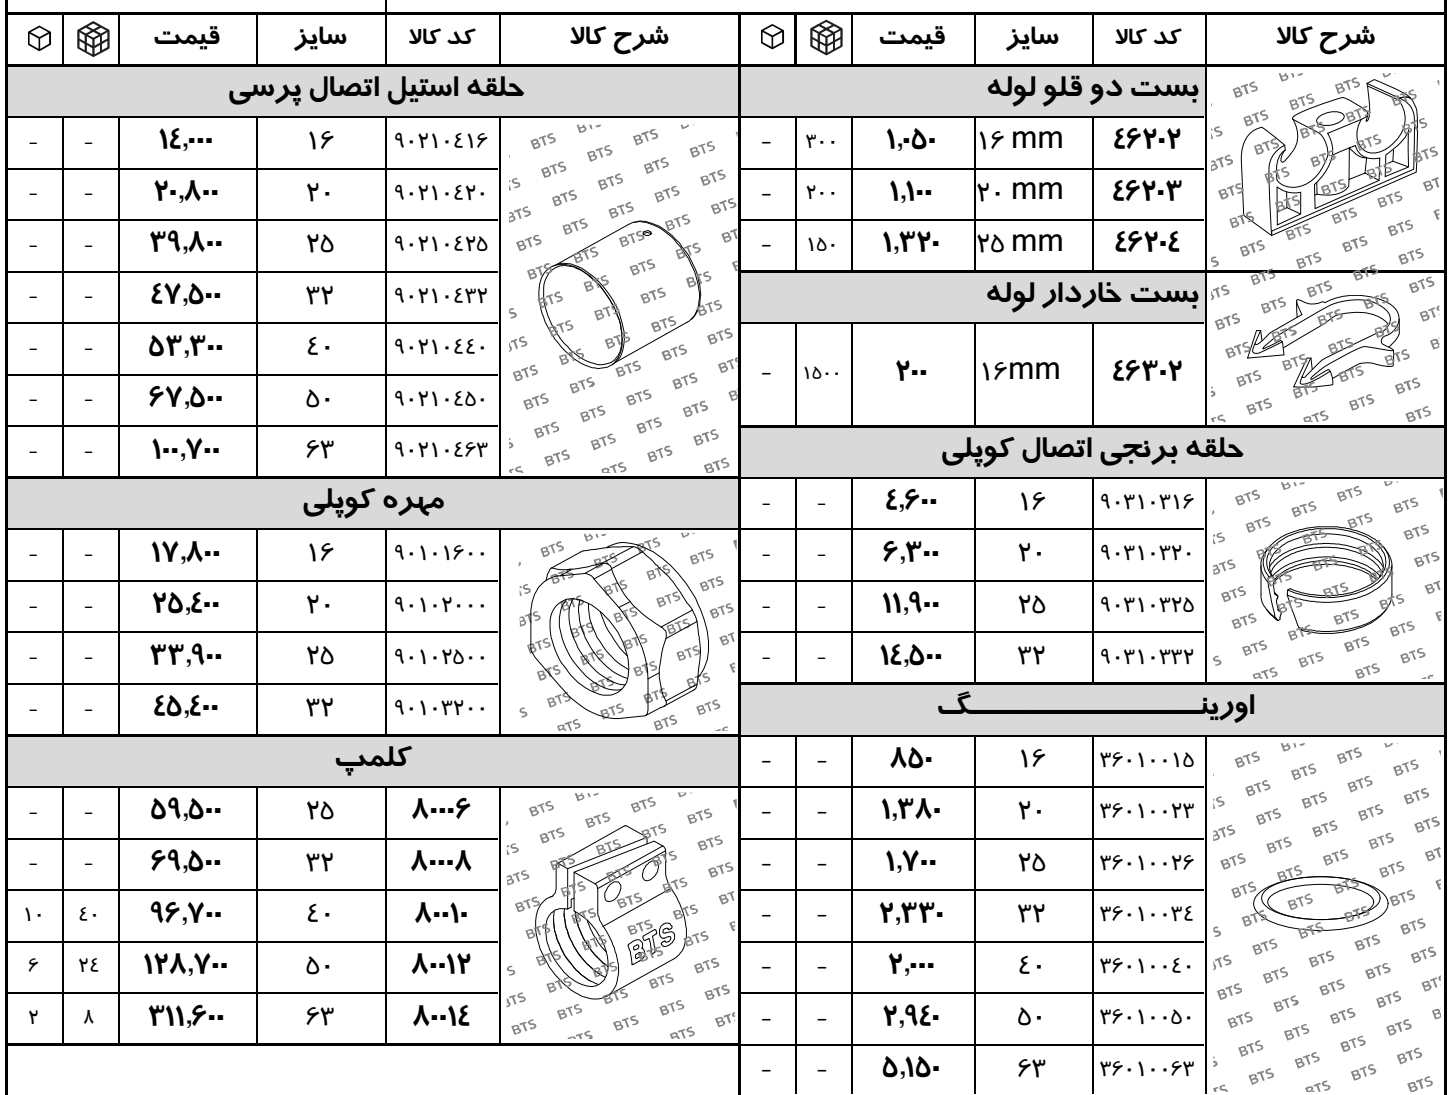 شرح کالا کد کالا سایز قیمت
بست دو قلو لوله
۴۶۲۰۲ ۱۶ mm ۱,۰۵۰ ۳۰۰ -
۴۶۲۰۳ ۲۰ mm ۱,۱۰۰ ۲۰۰ -
۴۶۲۰۴ ۲۵ mm ۱,۳۲۰ ۱۵۰ -
بست خاردار لوله
۴۶۳۰۲ ۱۶mm ۲۰۰ ۱۵۰۰ -
حلقه برنجی اتصال کوپلی
۹۰۳۱۰۳۱۶ ۱۶ ۴,۶۰۰ - -
۹۰۳۱۰۳۲۰ ۲۰ ۶,۳۰۰ - -
۹۰۳۱۰۳۲۵ ۲۵ ۱۱,۹۰۰ - -
۹۰۳۱۰۳۳۲ ۳۲ ۱۴,۵۰۰ - -
اورینــــــــــــگ
۳۶۰۱۰۰۱۵ ۱۶ ۸۵۰ - -
۳۶۰۱۰۰۲۳ ۲۰ ۱,۳۸۰ - -
۳۶۰۱۰۰۲۶ ۲۵ ۱,۷۰۰ - -
۳۶۰۱۰۰۳۴ ۳۲ ۲,۳۳۰ - -
۳۶۰۱۰۰۴۰ ۴۰ ۲,۰۰۰ - -
۳۶۰۱۰۰۵۰ ۵۰ ۲,۹۴۰ - -
۳۶۰۱۰۰۶۳ ۶۳ ۵,۱۵۰ - -
شرح کالا کد کالا سایز قیمت
حلقه استیل اتصال پرسی
۹۰۲۱۰۴۱۶ ۱۶ ۱۴,۰۰۰ - -
۹۰۲۱۰۴۲۰ ۲۰ ۲۰,۸۰۰ - -
۹۰۲۱۰۴۲۵ ۲۵ ۳۹,۸۰۰ - -
۹۰۲۱۰۴۳۲ ۳۲ ۴۷,۵۰۰ - -
۹۰۲۱۰۴۴۰ ۴۰ ۵۳,۳۰۰ - -
۹۰۲۱۰۴۵۰ ۵۰ ۶۷,۵۰۰ - -
۹۰۲۱۰۴۶۳ ۶۳ ۱۰۰,۷۰۰ - -
مهره کوپلی
۹۰۱۰۱۶۰۰ ۱۶ ۱۷,۸۰۰ - -
۹۰۱۰۲۰۰۰ ۲۰ ۲۵,۴۰۰ - -
۹۰۱۰۲۵۰۰ ۲۵ ۳۳,۹۰۰ - -
۹۰۱۰۳۲۰۰ ۳۲ ۴۵,۴۰۰ - -
کلمپ
۸۰۰۰۶ ۲۵ ۵۹,۵۰۰ - -
۸۰۰۰۸ ۳۲ ۶۹,۵۰۰ - -
۸۰۰۱۰ ۴۰ ۹۶,۷۰۰ ۴۰ ۱۰
۸۰۰۱۲ ۵۰ ۱۲۸,۷۰۰ ۲۴ ۶
۸۰۰۱۴ ۶۳ ۳۱۱,۶۰۰ ۸ ۲
BTS